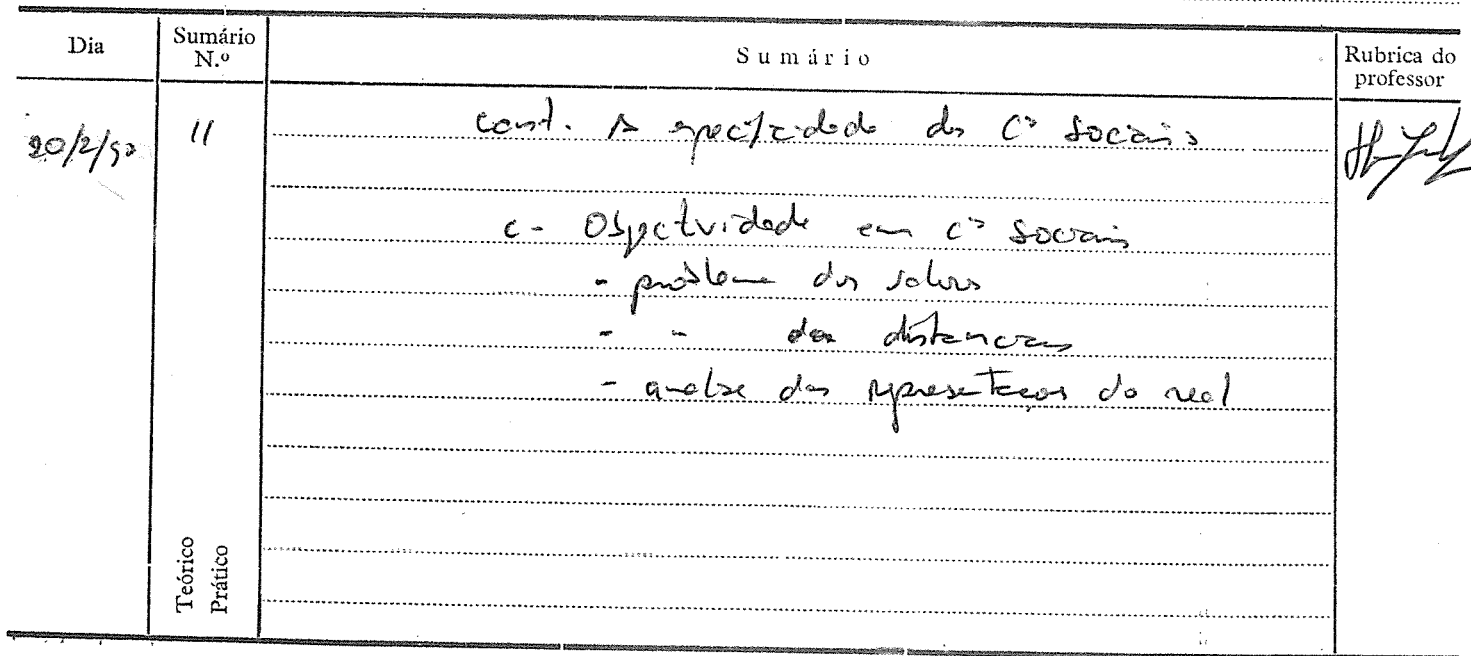 Dia Sumário N.º Sumário Rubrica do professor
11 cont. A especificidade das C^as Sociais
c- Objectividade em C^as Sociais
- problema dos valores
- - das distancias
- analise das representações do real
Teórico
Prático